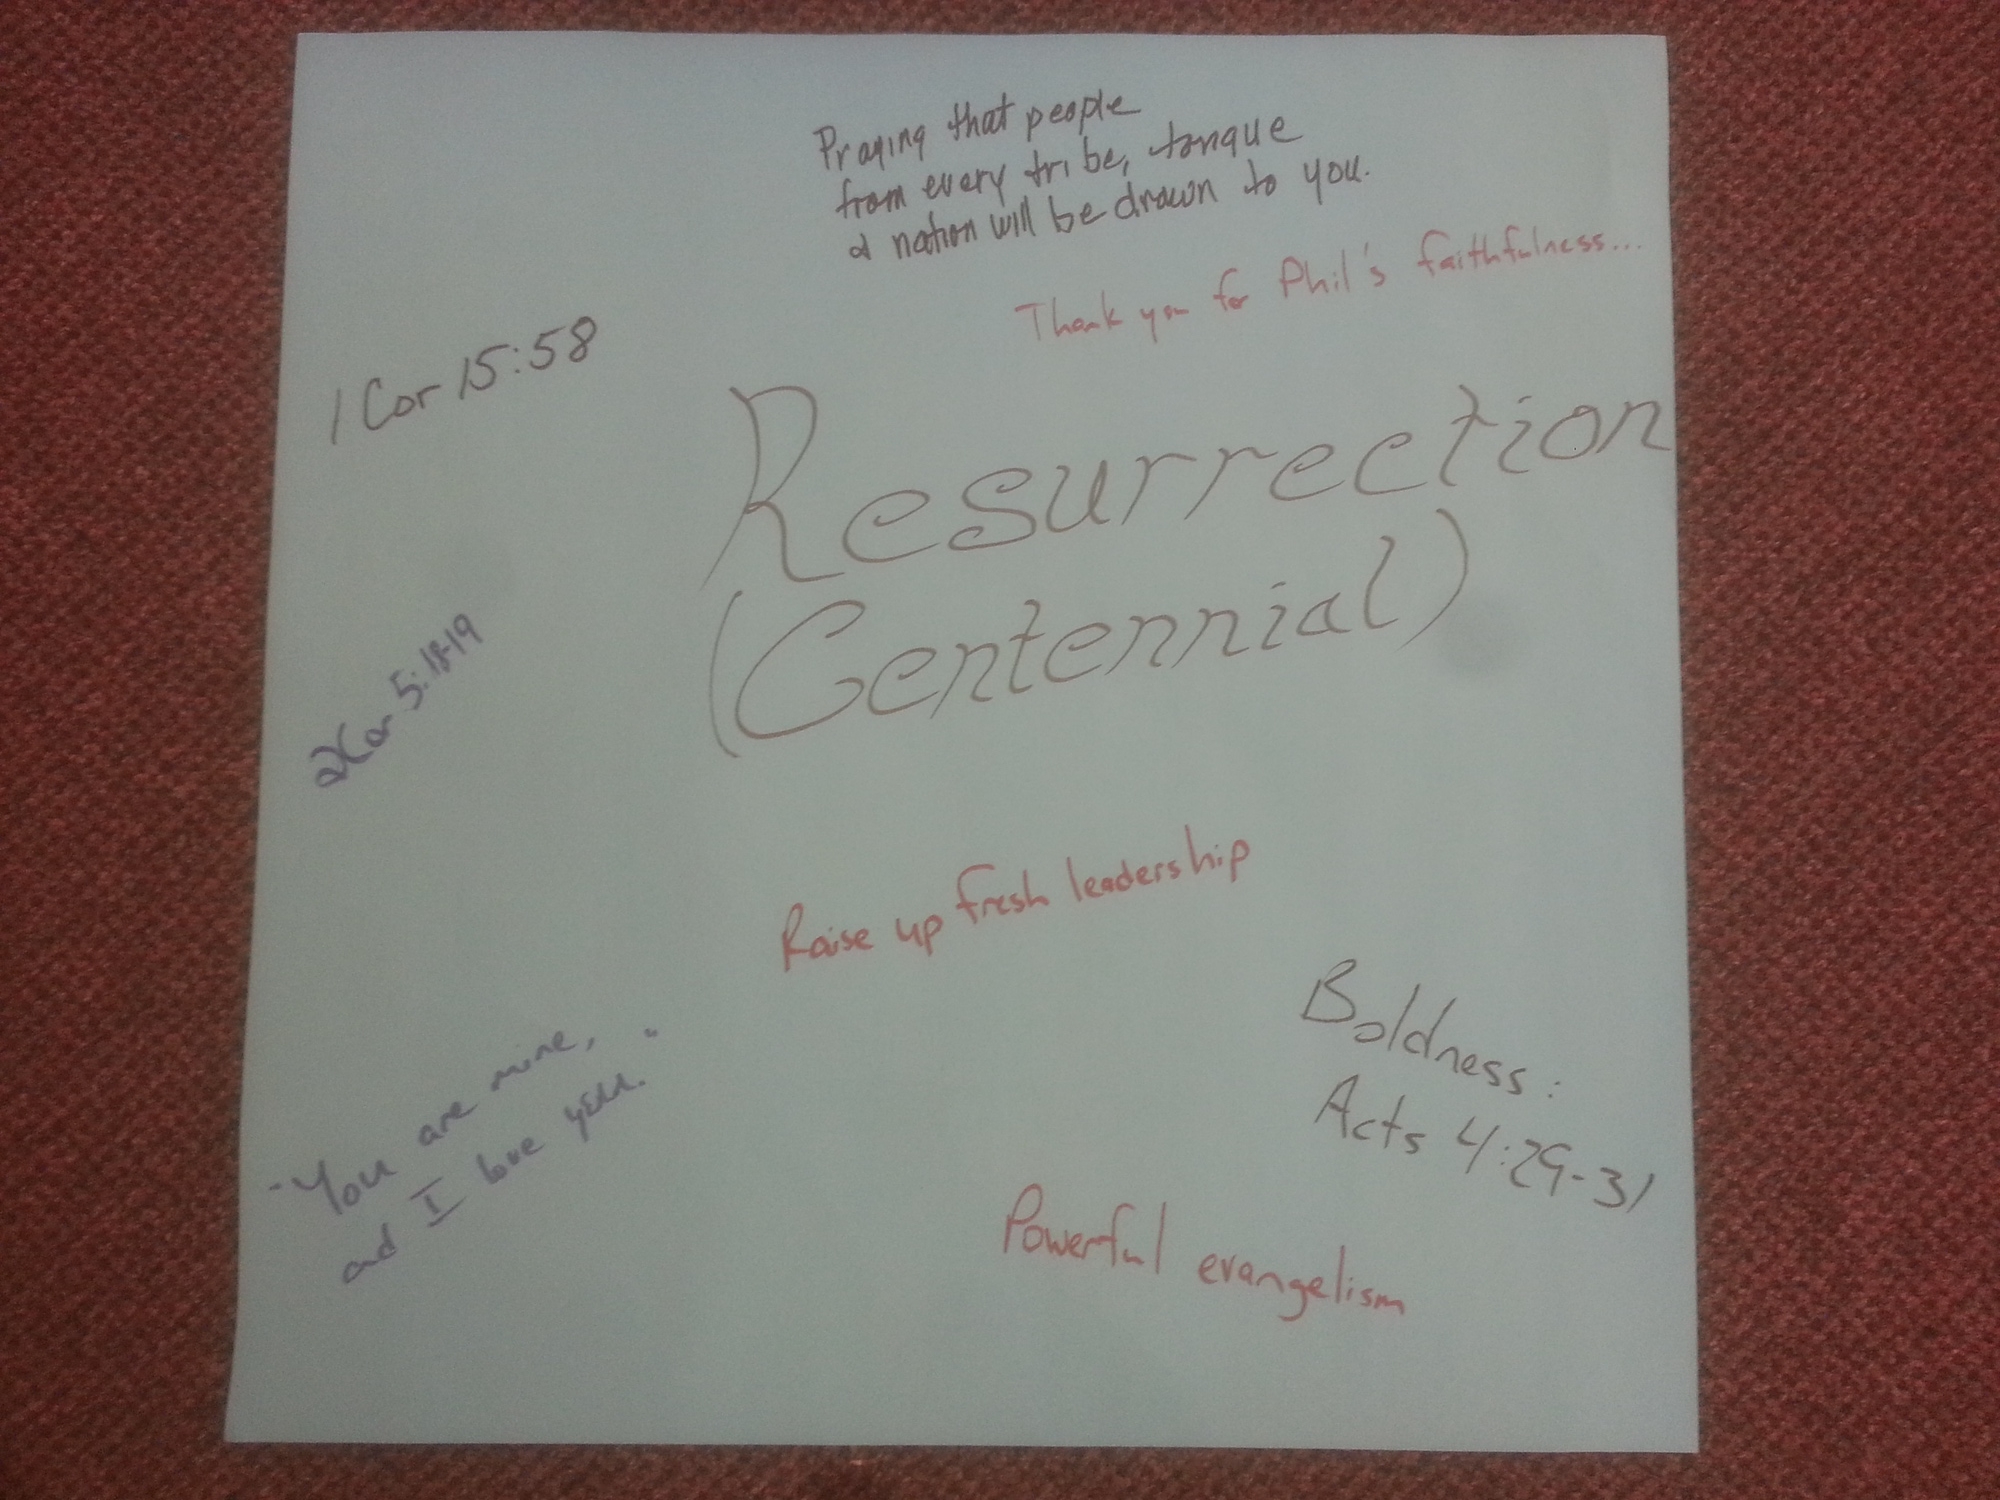 Praying that people
from every tribe, tongue
& nation will be drawn to you.
Thank you for Phil's faithfulness...
1 Cor 15:58
Resurrection
(Centennial)
2 Cor 5:18-19
Raise up fresh leadership
Boldness:
Acts 4:29-31
"You are mine,
and I love you."
Powerful evangelism